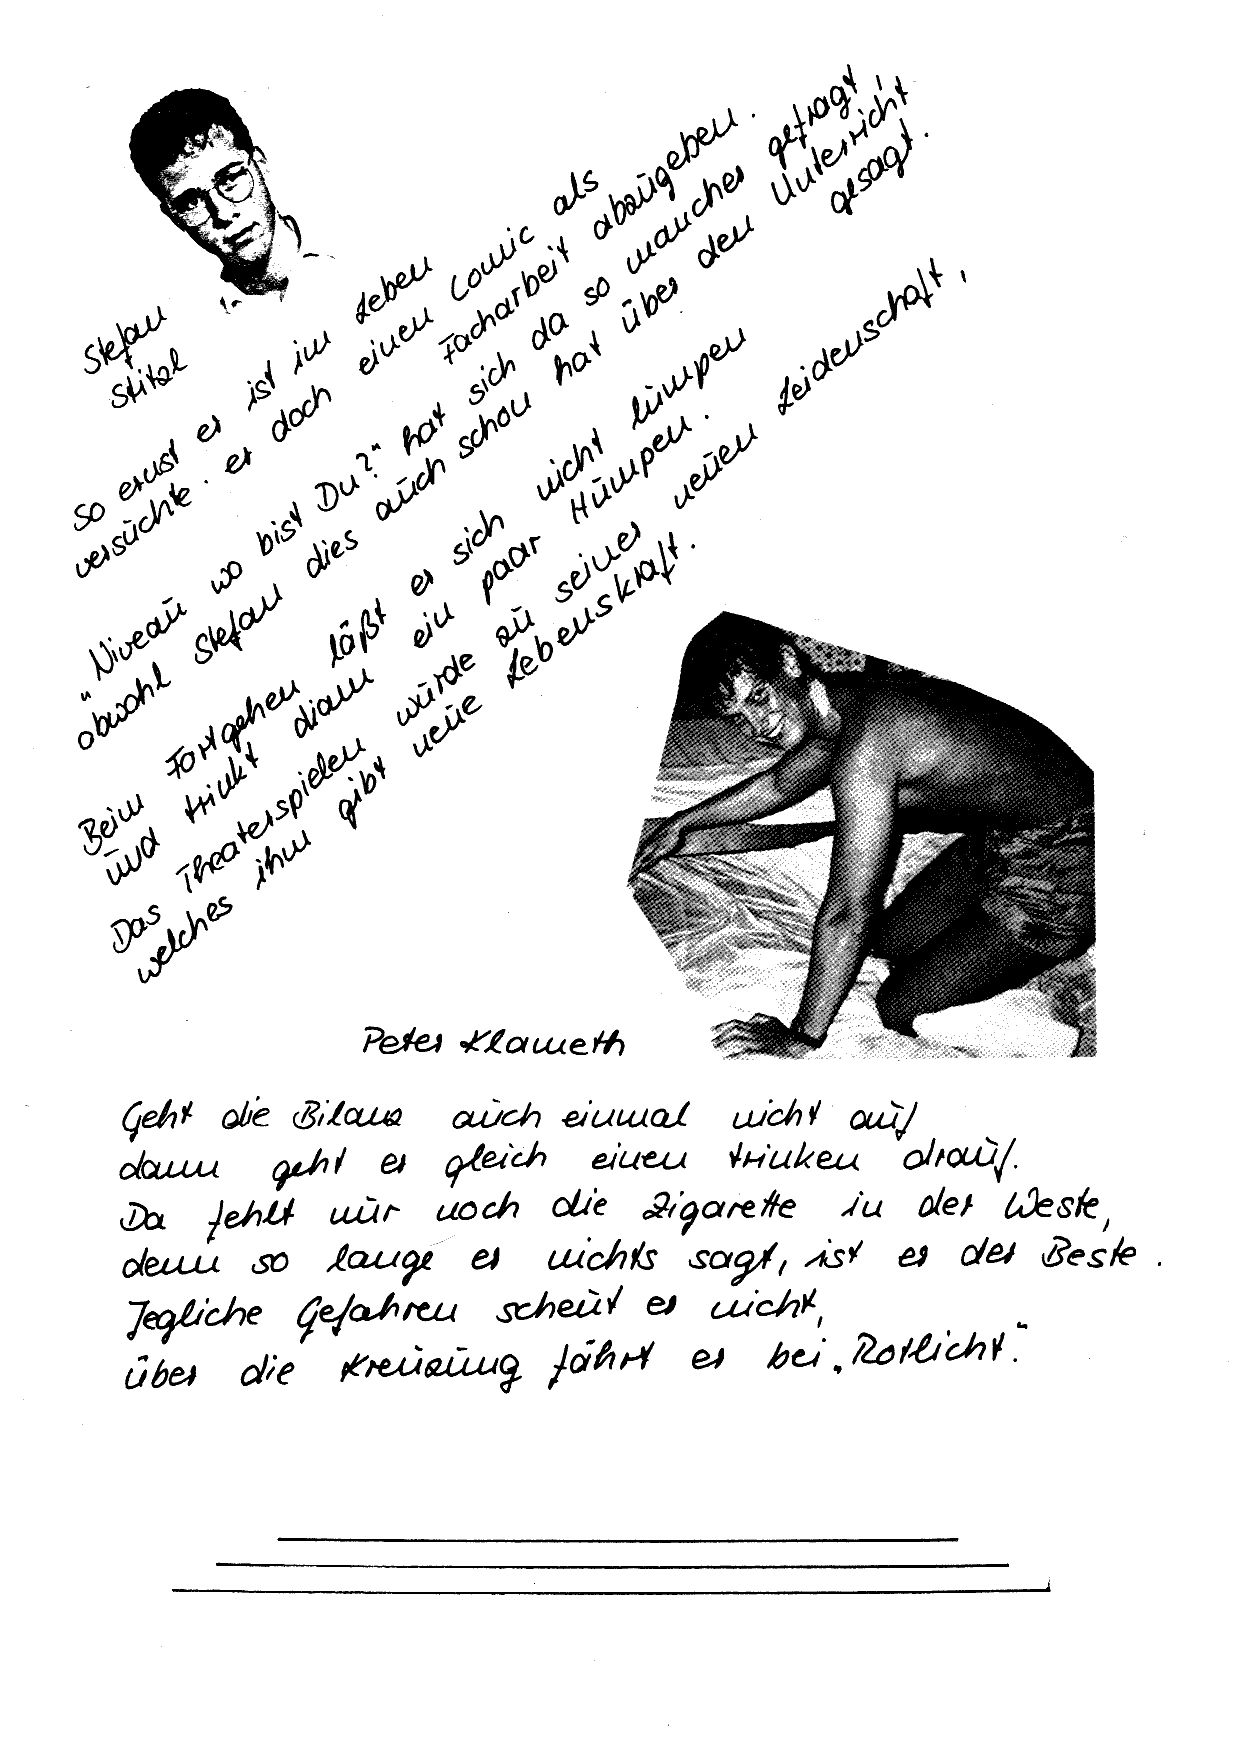 Stefan
Stitzl
So ernst er ist im Leben
versuchte er doch einen Comic als
Facharbeit abzugeben.
"Niveau wo bist Du?" hat sich da so mancher gefragt,
obwohl Stefan dies auch schon hat über den Unterricht
gesagt.
Beim Fortgehen läßt er sich nicht lumpen
und trinkt dann ein paar Humpen.
Das Theaterspielen wurde zu seiner neuen Leidenschaft,
welches ihm gibt neue Lebenskraft.
Peter Klameth
Geht die Bilanz auch einmal nicht auf
dann geht er gleich einen trinken drauf.
Da fehlt nur noch die Zigarette in der Weste,
denn so lange er nichts sagt, ist er der Beste.
Jegliche Gefahren scheut er nicht,
über die Kreuzung fährt er bei "Rotlicht".